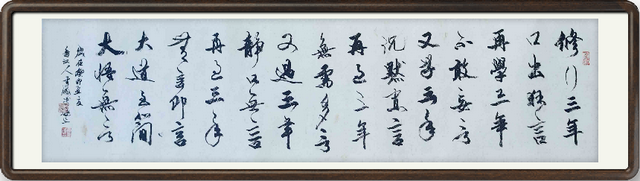 修行三年
口出狂言
再學年
不敢妄言
又學五年
沉默寡言
再過三年
無需多言
又過五年
静口無言
再過年
言即言
大道至简
大悟無言
歲在癸卯夏
人